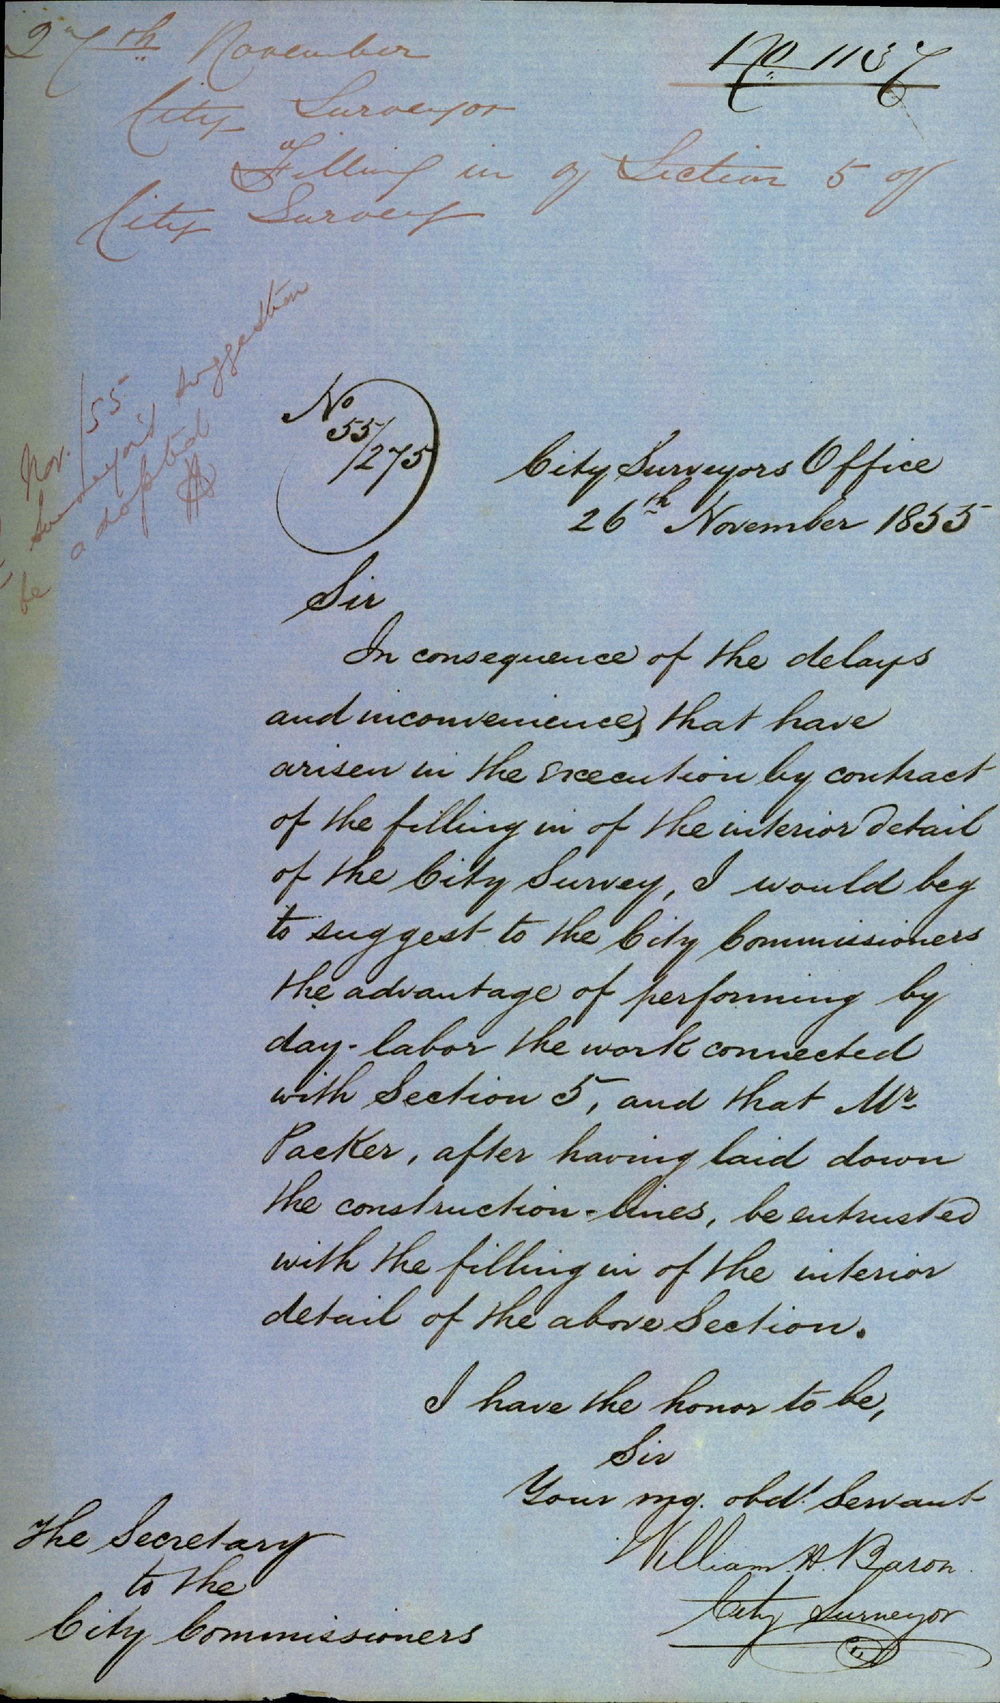 27th November
No 1137
City Surveyor
Filling in of Section 5 of
City Survey
Nov./55
Surveyor's suggestion
be adopted
No
55/
/275
City Surveyors Office
26th November 1855
Sir
In consequence of the delays
and inconvenience, that have
arisen in the execution by contract
of the filling in of the interior detail
of the City Survey, I would beg
to suggest to the City Commissioners
the advantage of performing by
day-labor the work connected
with Section 5, and that Mr
Packer, after having laid down
the construction-lines, be entrusted
with the filling in of the interior
detail of the above Section.
I have the honor to be,
Sir
Your mo. obdt. Servant
William H. Baron
City Surveyor
The Secretary
to the
City Commissioners